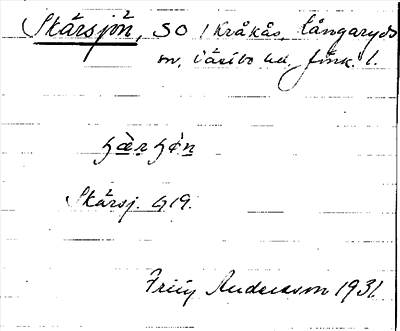 Skärsjön, SO i Kråkås, Långaryds
sn, Västbo hd. Jönk. l.
Skärsj. G 19.
Andersson 1931